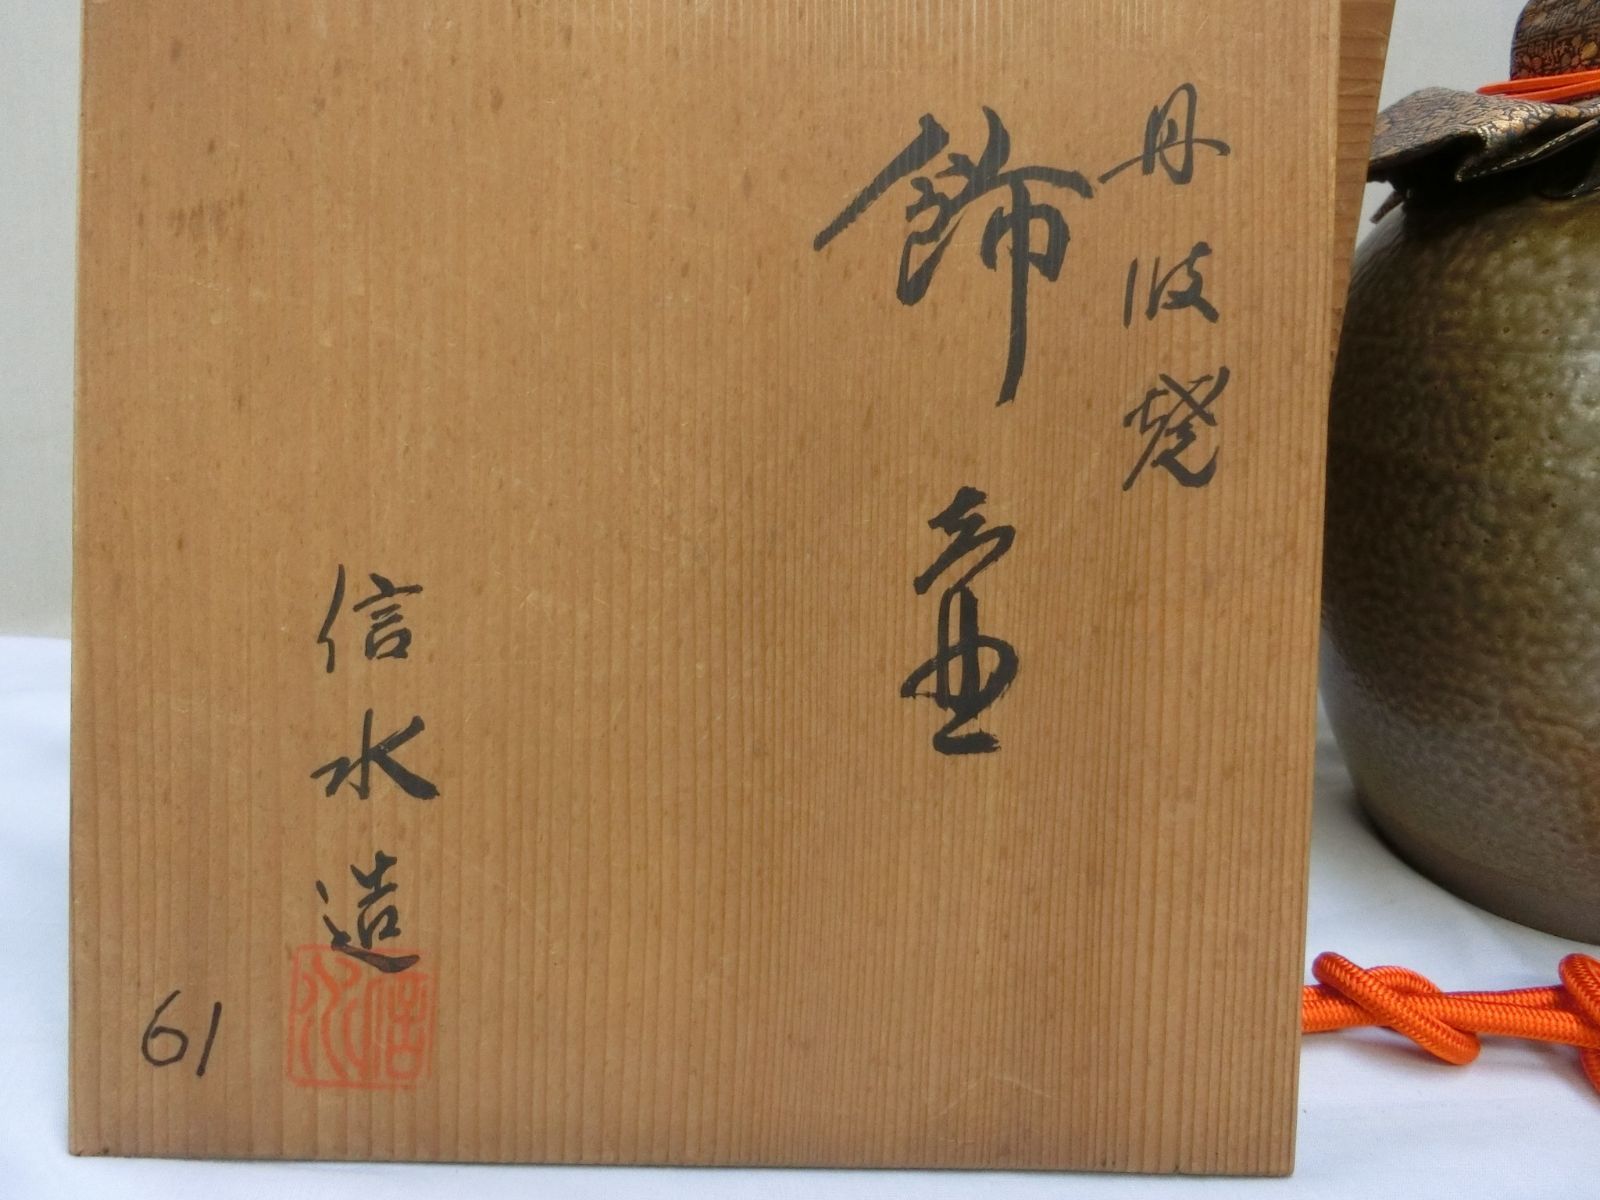 丹波焼
飾壷
信水造
信水
61